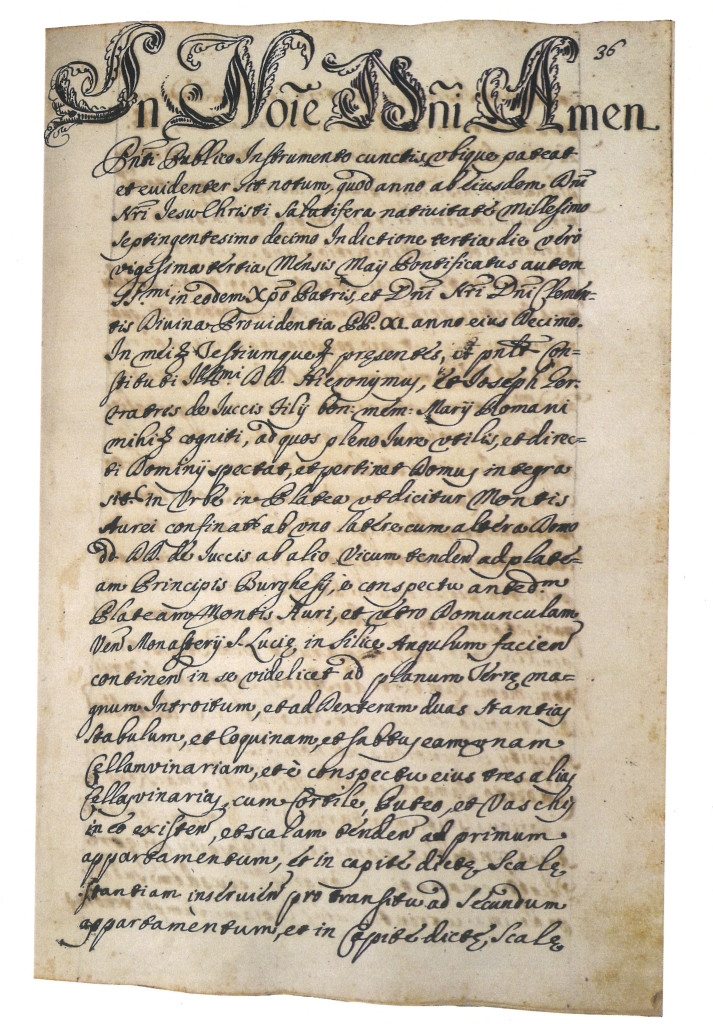 36
In Noĩe Dñi Amen
Pnti Publico Instrumento cunctis ubique pateat
et evidenter sit notum, quod anno ab eiusdem Dñi
Nri Iesu Christi salutifera nativitate Millesimo
septingentesimo decimo Indictione tertia die vero
vigesima tertia Mensis Maij Pontificatus autem
SSmi in eodem Xpõ Patris, et Dñi Nri Dñi Clemen-
tis Divina Providentia PP. XI. anno eius Decimo.
In mei Testiumque presentes, et pntr Con-
stituti Illmi DD. Hieronymus, et Ioseph Ger.
fratres de Iuccis filij bon: mem: Marij Romani
mihi cogniti, ad quos pleno Iure utilis, et direc-
ti Dominij spectat, et pertinet Domus integra
sit. in Urbe in Platea ut dicitur Montis
Aurei confinat ab uno latere cum altera Domo
dd. DD. de Iuccis ab alio Vicum tenden ad plate-
am Principis Burghesij, è conspectu antedm
Plateam Montis Auri, et retro Domunculam
Ven Monasterij S. Lucię in silice Angulum facien
continen in se videlicet ad planum Terrę ma-
gnum Introitum, et ad Dexteram duas stantias
stabulum, et Coquinam, et subtus eam unam
Cellam vinariam, et è conspectu eius tres alias
Cellas vinarias, cum Cortile, Puteo, et Vaschis
in eo existen, et scalam tenden ad primum
appartamentum, et in capite dictę Scalę
stantiam inservien pro transitu ad secundum
appartamentum, et in Capite dictę Scalę